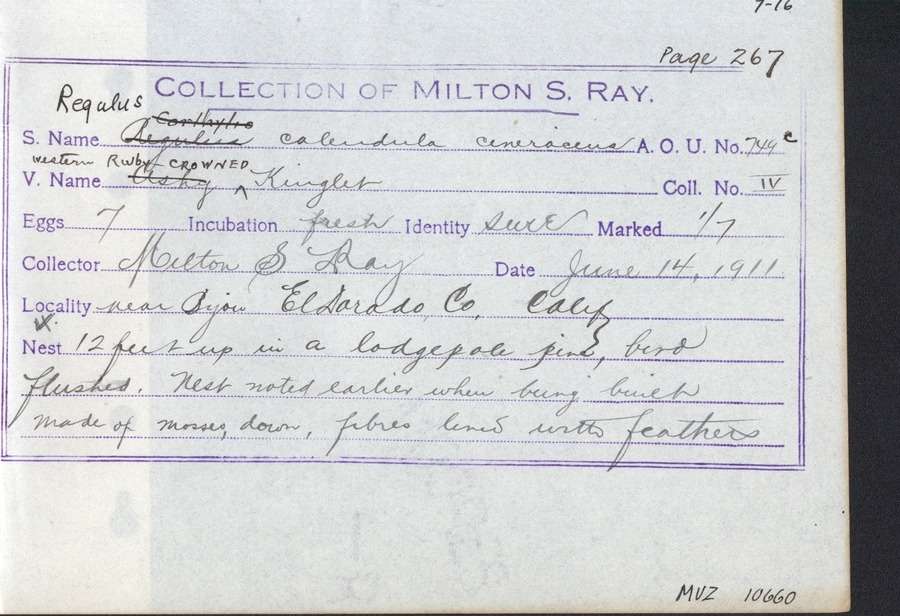 9-16
Page 267
COLLECTION OF MILTON S. RAY.
Regulus
Corthylio
S. Name Regulus calendula cineraceus A. O. U. No. 749c
western Ruby-CROWNED
V. Name Ashy ^ Kinglet Coll. No. IV
Eggs 7 Incubation fresh Identity sure Marked 1/7
Collector Milton S Ray Date June 14, 1911
Locality near Bijou El Dorado Co, Calif
x.
Nest 12 feet up in a lodgepole pine, bird
flushed. Nest noted earlier when being built
made of mosses, down, fibres lined with feathers
MVZ 10660